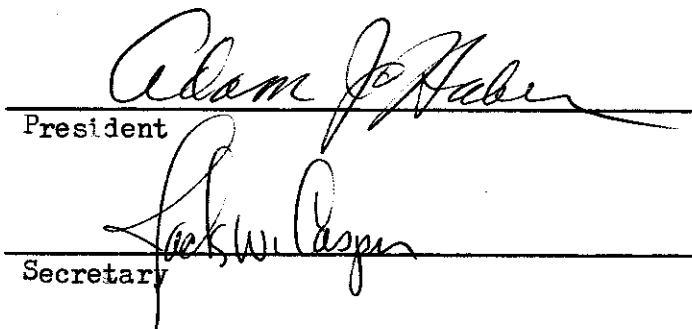 Adam J. Haber
President
Jack W. Casper
Secretary